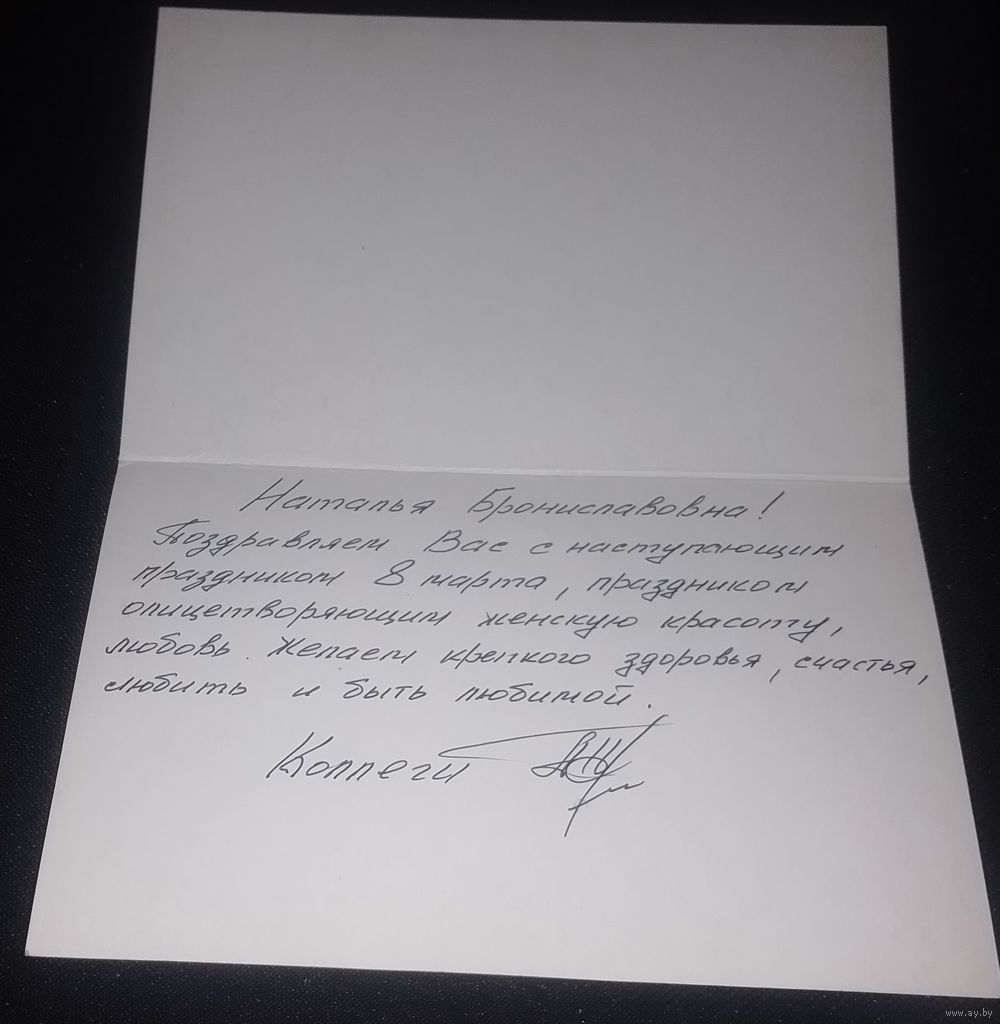 Наталья Брониславовна!
Поздравляем Вас с наступающим
праздником 8 марта, праздником
олицетворяющим женскую красоту,
любовь. Желаем крепкого здоровья, счастья,
любить и быть любимой.
Коллеги
www.ay.by